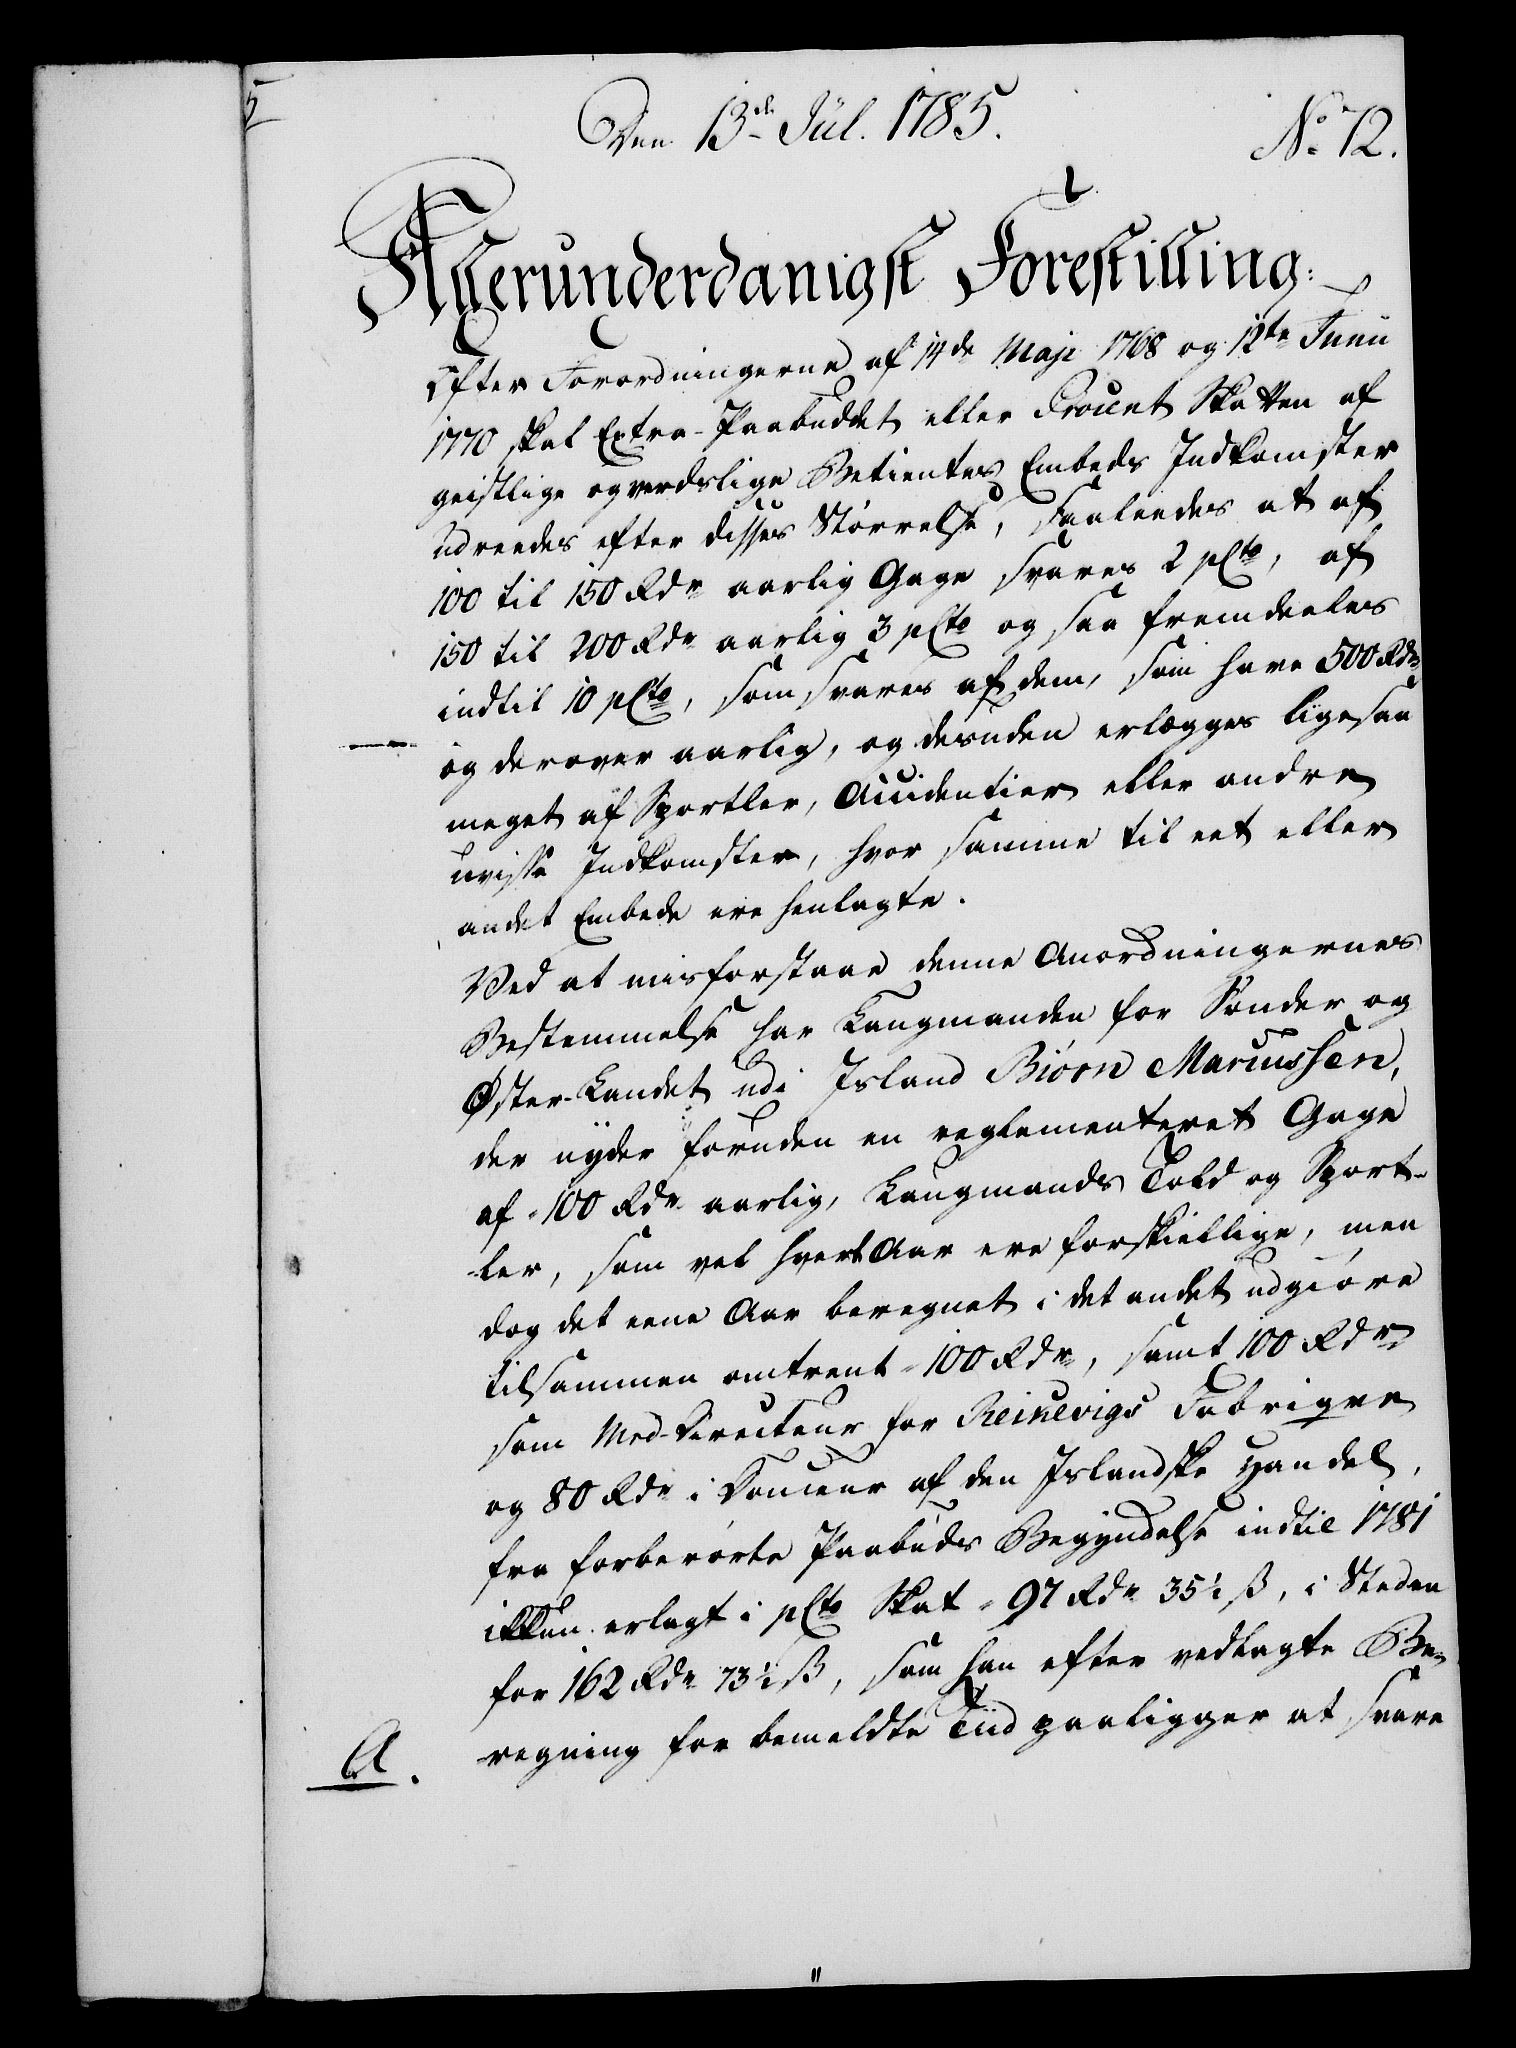 Den 13de Jul. 1785.
No 72.
Allerunderdanigst Forestilling:
Efter Forordningerne af 14de Maji 1768 og 12te Junii
1770 skal Extra-Paabuddet eller Procent Skatten af
geistlige og verdslige Betientes Embeds Indkomster
udreedes efter disses Størrelse, saaleedes at af
100 til 150 Rdr aarlig Gage svares 2 pCto, af
150 til 200 Rdr aarlig 3 pCto og saa fremdeeles
indtil 10 pCto, som svares af dem, som have 500 Rdr
og derover aarlig, og desuden erlægges ligesaa
meget af Sportler, Accidentier eller andre
uvisse Indkomster, hvor samme til eet eller
andet Embede ere henlagte.
Ved at misforstaae denne Anordningernes
Bestemmelse har Laugmanden for Sønder og
Øster-Landet udi Island Biørn Marcussen,
der nyder foruden en reglementeret Gage
af 100 Rdr aarlig, Laugmands Told og Sport-
-ler, som vel hvert Aar ere forskiellige, men
dog det eene Aar beregnet i det andet udgiøre
tilsammen omtrent 100 Rdr, samt 100 Rdr
som Med-Directeur for Reikevigs Fabriqve
og 80 Rdr i Douceur af den Islandske Handel,
fra forberørte Paabuds Begyndelse indtil 1781
ikkun erlagt i pCto Skat 97 Rdr 35½ ß, i Steden
for 162 Rdr 73½ ß, som han efter vedlagte Be-
A.
regning for bemeldte Tiid paaligger at svare